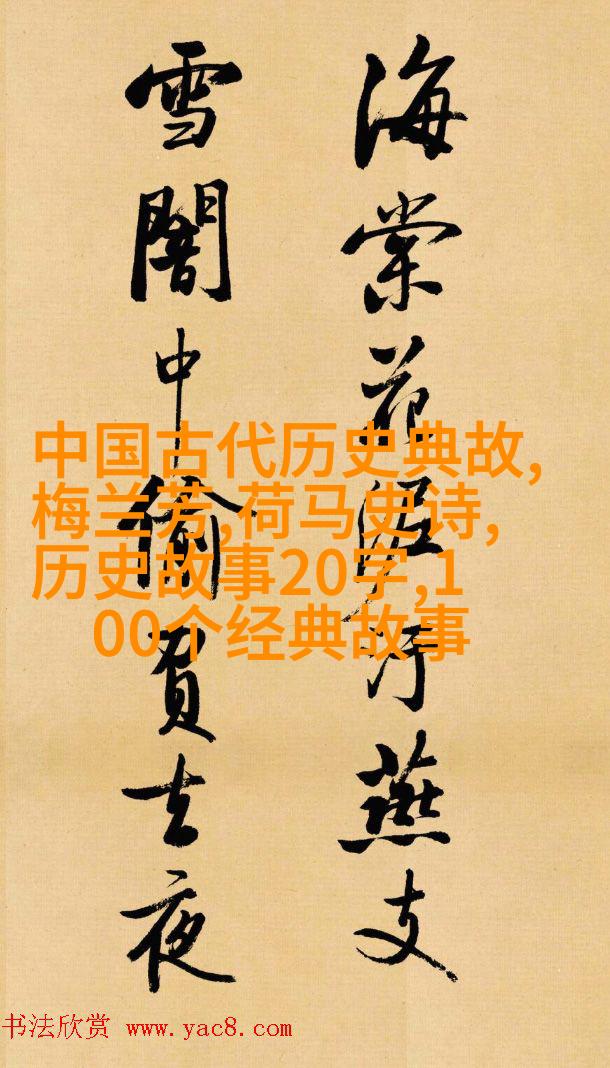 海棠花泥污燕支
雪闇中偷負去夜
中国古代历史典故,
梅兰芳,荷马史诗,
历史故事20字,1
00个经典故事
书法欣赏 www.yac8.com